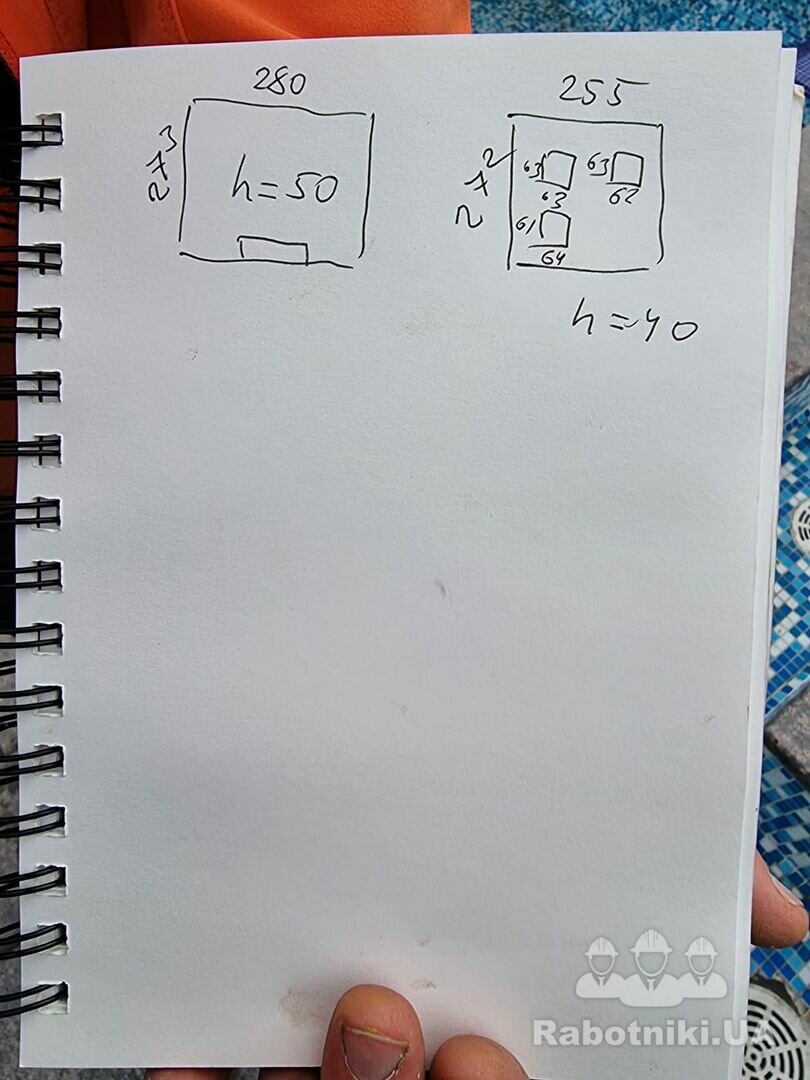 280
273
h=50
255
272
63
63
63
62
61
64
h=40
Rabotniki.U